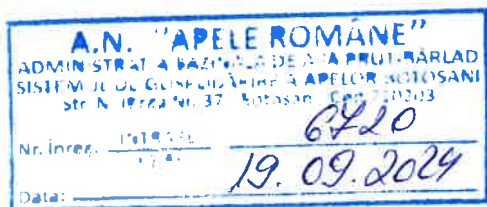 A.N. "APELE ROMÂNE"
ADMINISTRAȚIA BAZINALĂ DE APĂ PRUT-BÂRLAD
SISTEMUL DE GOSPODĂRIRE A APELOR BOTOȘANI
Str. Nr. 37 Botoșani Cod
Nr. înreg. INTRARE 6720
Data: 19. 09. 2024